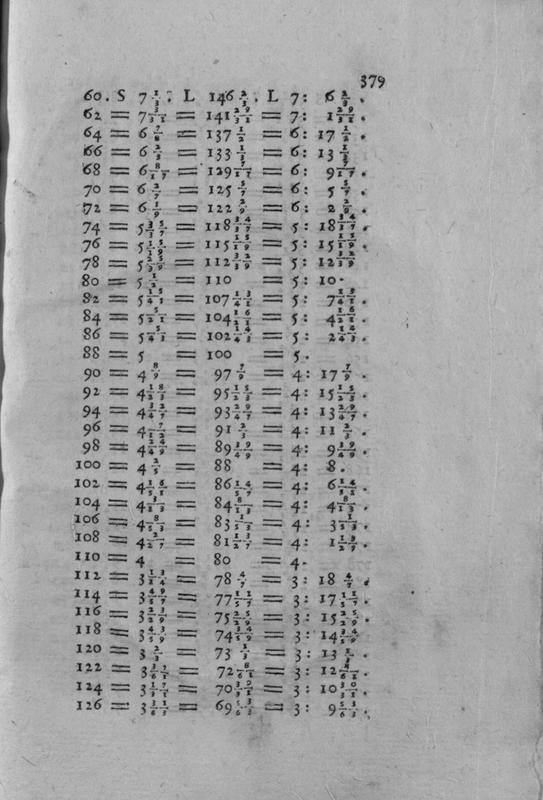 379
60. S 7 1/3. L 146 2/3. L 7: 6 2/3.
62 = 7 3/31 = 141 29/31 = 7: 1 29/31.
64 = 6 7/8 = 137 1/2 = 6: 17 1/2.
66 = 6 2/3 = 133 1/3 = 6: 13 1/3.
68 = 6 8/17 = 129 7/17 = 6: 9 7/17.
70 = 6 2/7 = 125 5/7 = 6: 5 5/7.
72 = 6 1/9 = 122 2/9 = 6: 2 2/9.
74 = 5 35/37 = 118 34/37 = 5: 18 34/37.
76 = 5 15/19 = 115 15/19 = 5: 15 15/19.
78 = 5 25/39 = 112 32/39 = 5: 12 32/39.
80 = 5 1/2 = 110 = 5: 10.
82 = 5 15/41 = 107 13/41 = 5: 7 13/41.
84 = 5 5/21 = 104 16/21 = 5: 4 16/21.
86 = 5 5/43 = 102 14/43 = 5: 2 14/43.
88 = 5 = 100 = 5.
90 = 4 8/9 = 97 7/9 = 4: 17 7/9.
92 = 4 18/23 = 95 15/23 = 4: 15 15/23.
94 = 4 32/47 = 93 29/47 = 4: 13 29/47.
96 = 4 7/12 = 91 2/3 = 4: 11 2/3.
98 = 4 24/49 = 89 39/49 = 4: 9 39/49.
100 = 4 2/5 = 88 = 4: 8.
102 = 4 16/51 = 86 14/57 = 4: 6 14/51.
104 = 4 3/13 = 84 8/13 = 4: 4 8/13.
106 = 4 8/53 = 83 1/53 = 4: 3 1/53.
108 = 4 2/27 = 81 13/27 = 4: 1 13/29.
110 = 4 = 80 = 4.
112 = 3 13/14 = 78 4/7 = 3: 18 4/7.
114 = 3 49/57 = 77 11/57 = 3: 17 11/57.
116 = 3 23/29 = 75 25/29 = 3: 15 25/29.
118 = 3 43/59 = 74 34/59 = 3: 14 34/59.
120 = 3 2/3 = 73 1/3 = 3: 13 1/3.
122 = 3 37/61 = 72 8/61 = 3: 12 8/61.
124 = 3 17/31 = 70 30/31 = 3: 10 30/31.
126 = 3 31/63 = 69 53/63 = 3: 9 53/63.